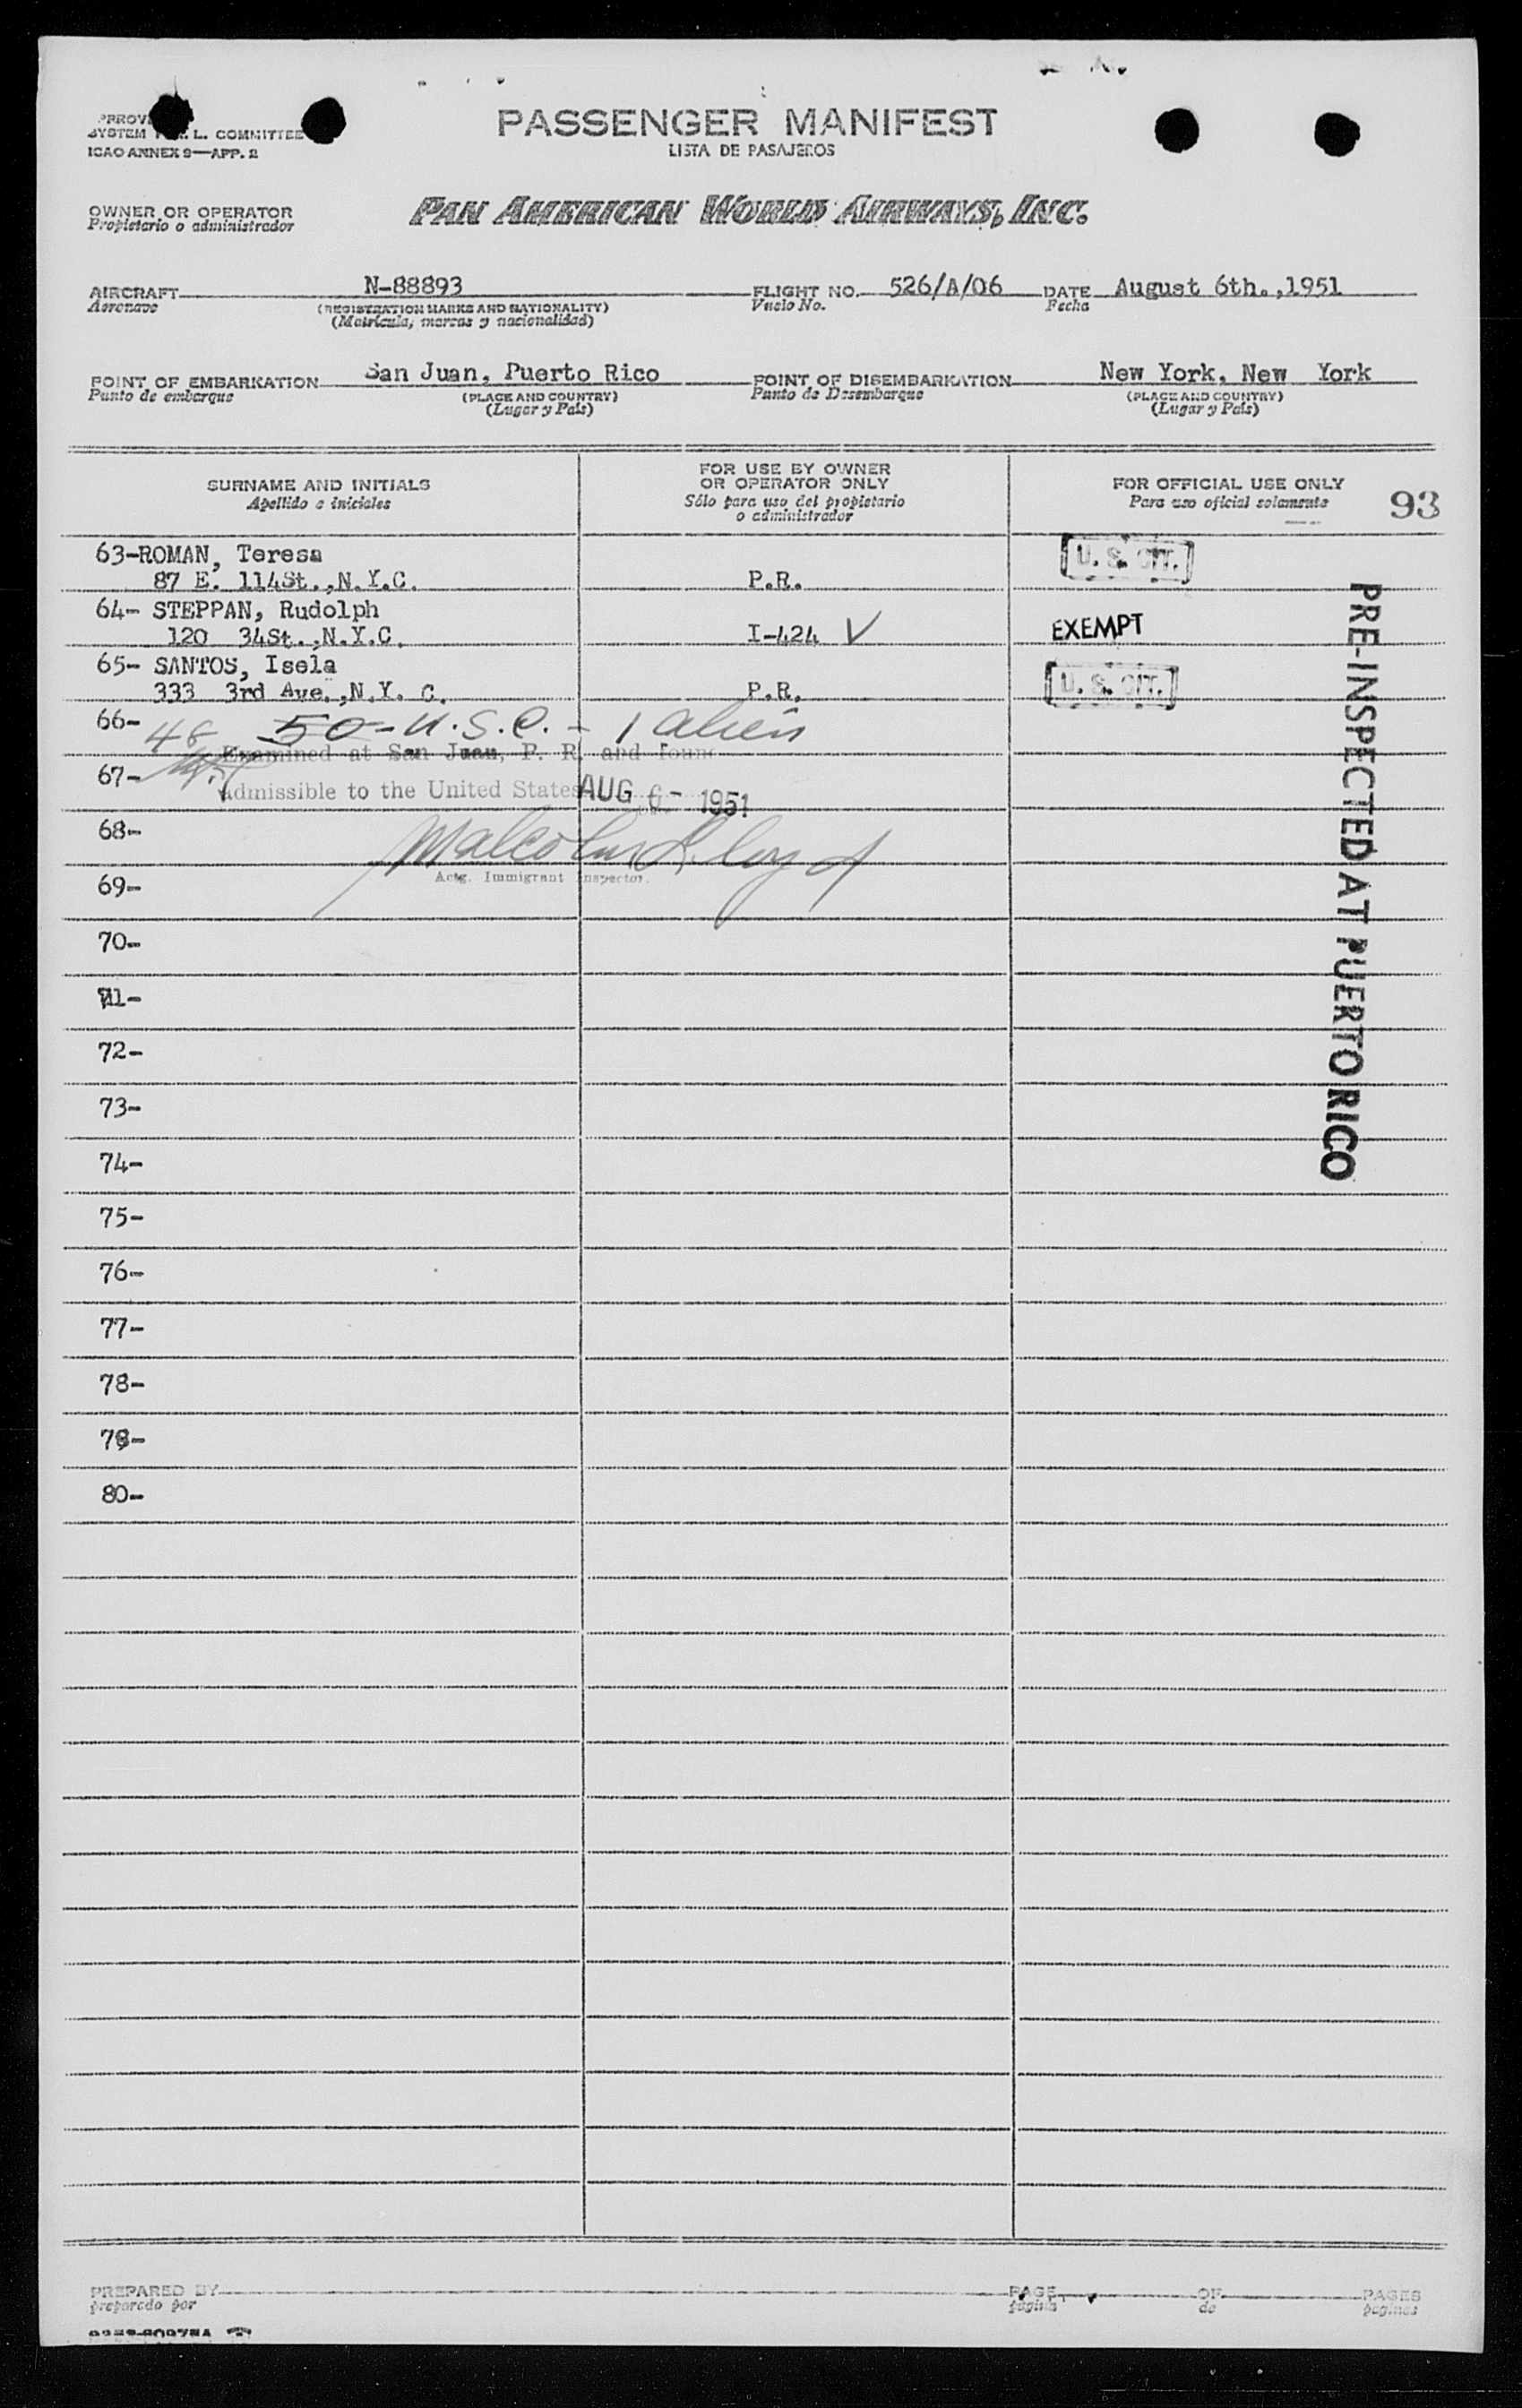 PASSENGER MANIFEST
LISTA DE PASAJEROS
SYSTEM L. COMMITTEE
ICAO ANNEX 9—APP. 2
OWNER OR OPERATOR
Propietario o administrador
PAN AMERICAN WORLD AIRWAYS, INC.
AIRCRAFT N-88893 FLIGHT NO. 526/A/06 DATE August 6th.,1951
Aeronave (REGISTRATION MARKS AND NATIONALITY) Vuelo No. Fecha
(Matrícula, marcas y nacionalidad)
POINT OF EMBARKATION San Juan, Puerto Rico POINT OF DISEMBARKATION New York, New York
Punto de embarque (PLACE AND COUNTRY) Punto de Desembarque (PLACE AND COUNTRY)
(Lugar y País) (Lugar y País)
SURNAME AND INITIALS
Apellido e iniciales
FOR USE BY OWNER
OR OPERATOR ONLY
Sólo para uso del propietario
o administrador
FOR OFFICIAL USE ONLY
Para uso oficial solamente
93
63-ROMAN, Teresa
87 E. 114St.,N.Y.C. P.R. U. S. CIT.
64- STEPPAN, Rudolph
120 34St.,N.Y.C. I-424 V EXEMPT
65- SANTOS, Isela
333 3rd Ave.,N.Y. C. P.R. U. S. CIT.
66- 48 50-U.S.C. - 1 alien
Examined at San Juan, P. R. and found
67-
Admissible to the United States AUG 6- 1951
68-
Actg. Immigrant Inspector.
69-
70-
71-
72-
73-
74-
75-
76-
77-
78-
79-
80-
PRE-INSPECTED AT PUERTO RICO
PREPARED BY PAGE OF PAGES
preparado por página de paginas